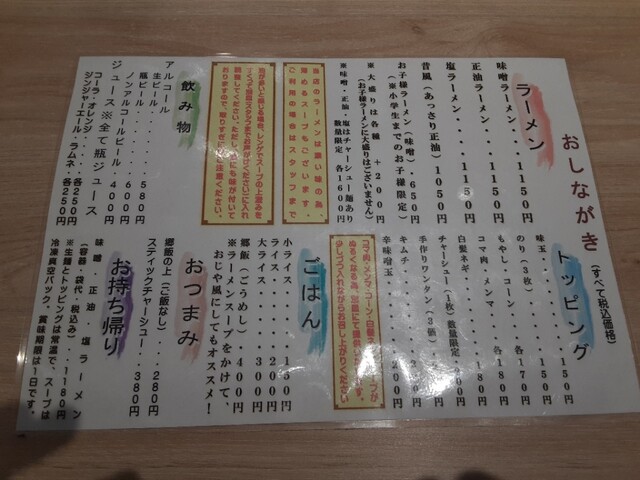 おしながき
(すべて税込価格)
ラーメン
味噌ラーメン・・・1150円
正油ラーメン・・・1150円
塩ラーメン・・・・1150円
昔風(あっさり正油)1050円
お子様ラーメン(味噌)・650円
(※小学生までのお子様限定)
※大盛りは各種 +200円
(お子様ラーメンに大盛りはございません)
※味噌・正油・塩はチャーシュー麺あり
数量限定 各1600円
当店のラーメンは濃い味の為、
薄めるスープもございます。
ご利用の場合はスタッフまで
飲み物
アルコール
生ビール・・・・・580円
瓶ビール・・・・・600円
ノンアルコールビール・400円
ジュース※全て瓶ジュース
コーラ・オレンジ・・各250円
ジンジャーエール・ラムネ・各250円
トッピング
味玉・・・・・・150円
のり(3枚)・・・・150円
もやし・コーン・各170円
コマ肉・メンマ・各180円
白髪ネギ・・・・・180円
チャーシュー(1枚)数量限定
手作りワンタン(3個)
キムチ・・・・・
辛味噌玉・・・・200円
ごはん
小ライス・・・150円
ライス・・・・200円
大ライス・・・300円
郷飯(ごうめし)・・400円
※ラーメンスープをかけて、
おじや風にしてもオススメ!
おつまみ
郷飯の上(ご飯なし)・・・280円
スティックチャーシュー・・380円
お持ち帰り
味噌・正油・塩ラーメン
(容器・袋代・税込み)・・1180円
※生麺とトッピングは常温で、スープは
冷凍真空パック・賞味期限は1日です。